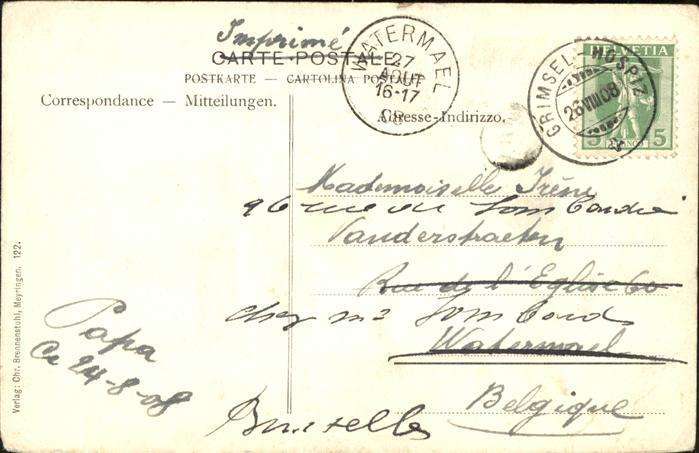 Imprimé
CARTE POSTALE
POSTKARTE — CARTOLINA POSTALE
Correspondance — Mitteilungen.
Adresse-Indirizzo.
WATERMAEL
27
AOUT
16-17
08
GRIMSEL HOSPIZ
26 VIII 08
HELVETIA
5 5
Mademoiselle Irène
96 rue du Lombardie
Vanderstraeten
Rue de l'Eglise 60
chez Mr Lombard
Watermael
Belgique
Bruxelles
Papa
Ce 24-8-08
Verlag: Chr. Brennenstuhl, Meyringen. 122.